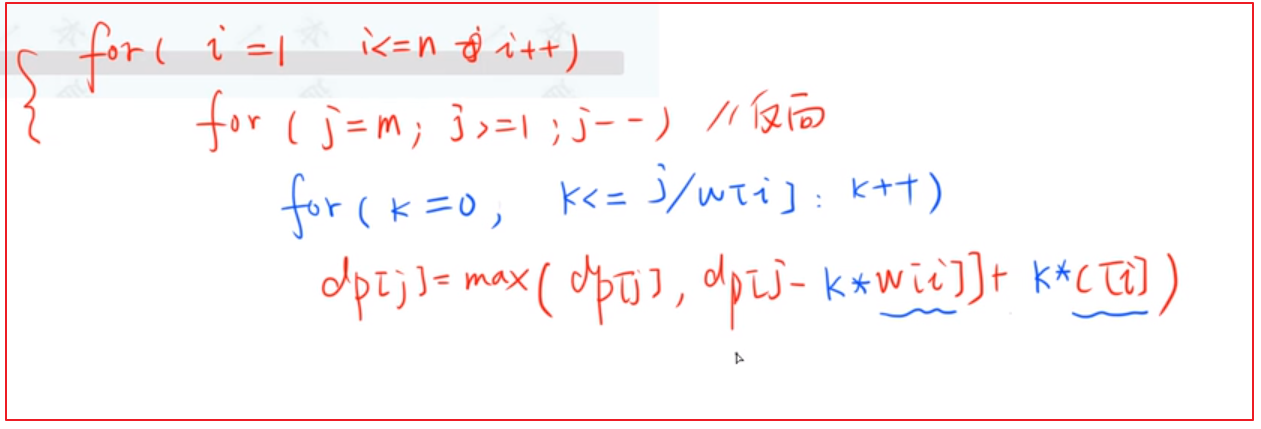 for( i=1 i<=n i++)
for ( j=m; j>=1 ; j--) // 反面
for( k=0, k<= j/w[i] : k++)
dp[j]= max( dp[j], dp[j- k*w[i]]+ k*c[i])